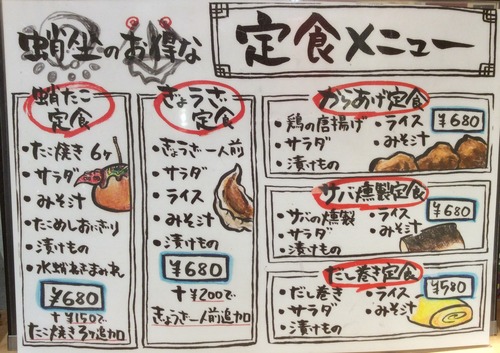 蛸坐のお得な
定食メニュー
蛸たこ
定食
・たこ焼き6ヶ
・サラダ
・みそ汁
・たこめしおにぎり
・漬けもの
・水蛸ねぎまみれ
¥680
+¥150で
たこ焼き3ヶ追加
ぎょうざ
定食
・ぎょうざ一人前
・サラダ
・ライス
・みそ汁
・漬けもの
¥680
+¥200で
ぎょうざ一人前追加
からあげ定食
・鶏の唐揚げ ・ライス
・サラダ ・みそ汁
・漬けもの
¥680
サバ燻製定食
・サバの燻製 ・ライス
・サラダ ・みそ汁
・漬けもの
¥680
だし巻き定食
・だし巻き ・ライス
・サラダ ・みそ汁
・漬けもの
¥580